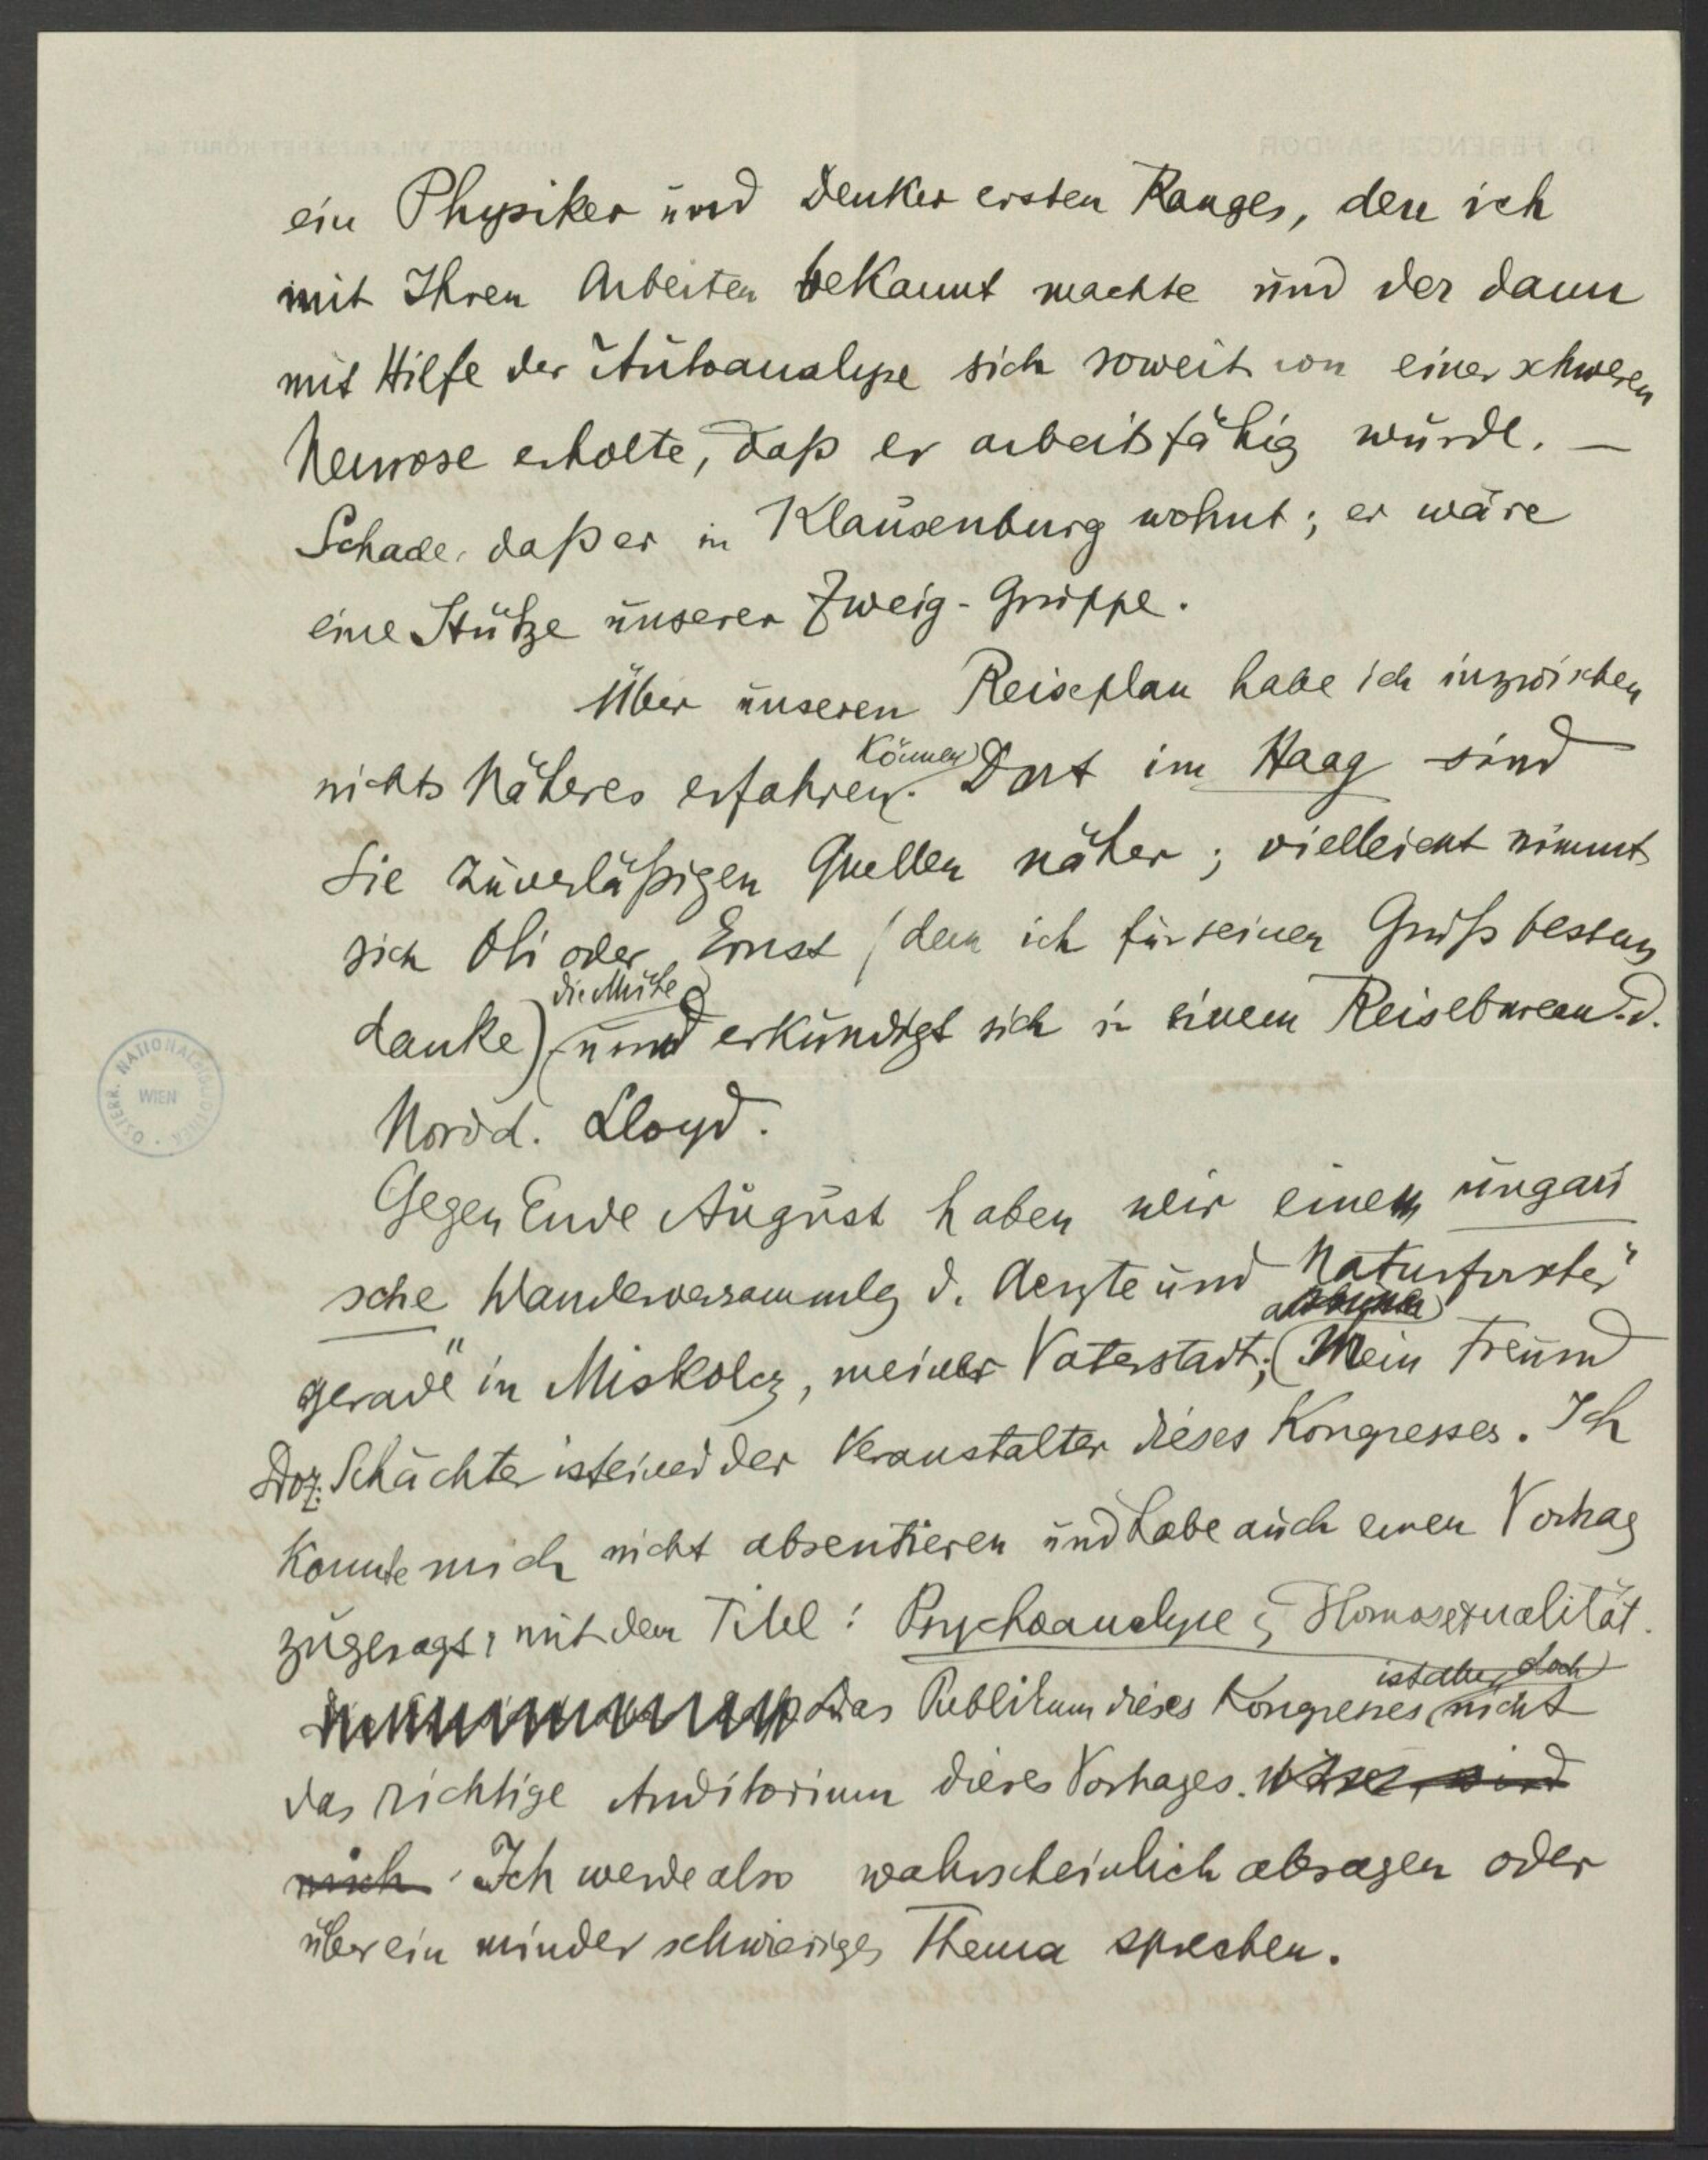 ein Physiker und Denker ersten Ranges, den ich
mit Ihren Arbeiten bekannt machte und der dann
mit Hilfe der Autoanalyse sich soweit von einer schweren
Neurose erholte, daß er arbeitsfähig wurde. —
Schade, daß er in Klausenburg wohnt; er wäre
eine Stütze unserer Zweig-Gruppe.
Über unseren Reiseplan habe ich inzwischen
nichts Näheres erfahren können. Dort im Haag sind
Sie zuverläßigen Quellen näher; vielleicht nimmt
sich Oli oder Ernst (dem ich für seinen Gruß bestens
danke) die Mühe und erkundigt sich in einem Reisebureau d.
Nordd. Lloyd.
Gegen Ende August haben wir eine ungari
sche Wanderversammlg d. Aerzte und Naturforscher"
gerade" in Miskolcz, meiner Vaterstadt; Mein Freund
Doz. Schächter ist einer der Veranstalter dieses Kongresses. Ich
konnte mich nicht absentieren und habe auch einen Vortrag
zugesagt, mit dem Titel: Psychoanalyse & Homosexualität.
Das Publikum dieses Kongresses ist aber doch nicht
das richtige Auditorium dieses Vortrages.
Ich werde also wahrscheinlich absagen oder
über ein minder schwieriges Thema sprechen.
ÖSTERR. NATIONALBIBLIOTHEK
WIEN